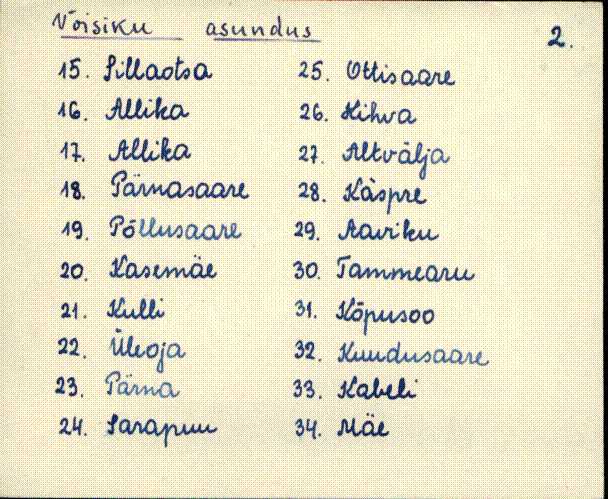 Võisiku asundus
2.
15. Sillaotsa
16. Allika
17. Allika
18. Pärnasaare
19. Põllusaare
20. Kasemäe
21. Kulli
22. Üleoja
23. Pärna
24. Sarapuu
25. Ottisaare
26. Kihva
27. Altvälja
28. Käspre
29. Aaviku
30. Tammearu
31. Kõpusoo
32. Kuudusaare
33. Kabeli
34. Mäe